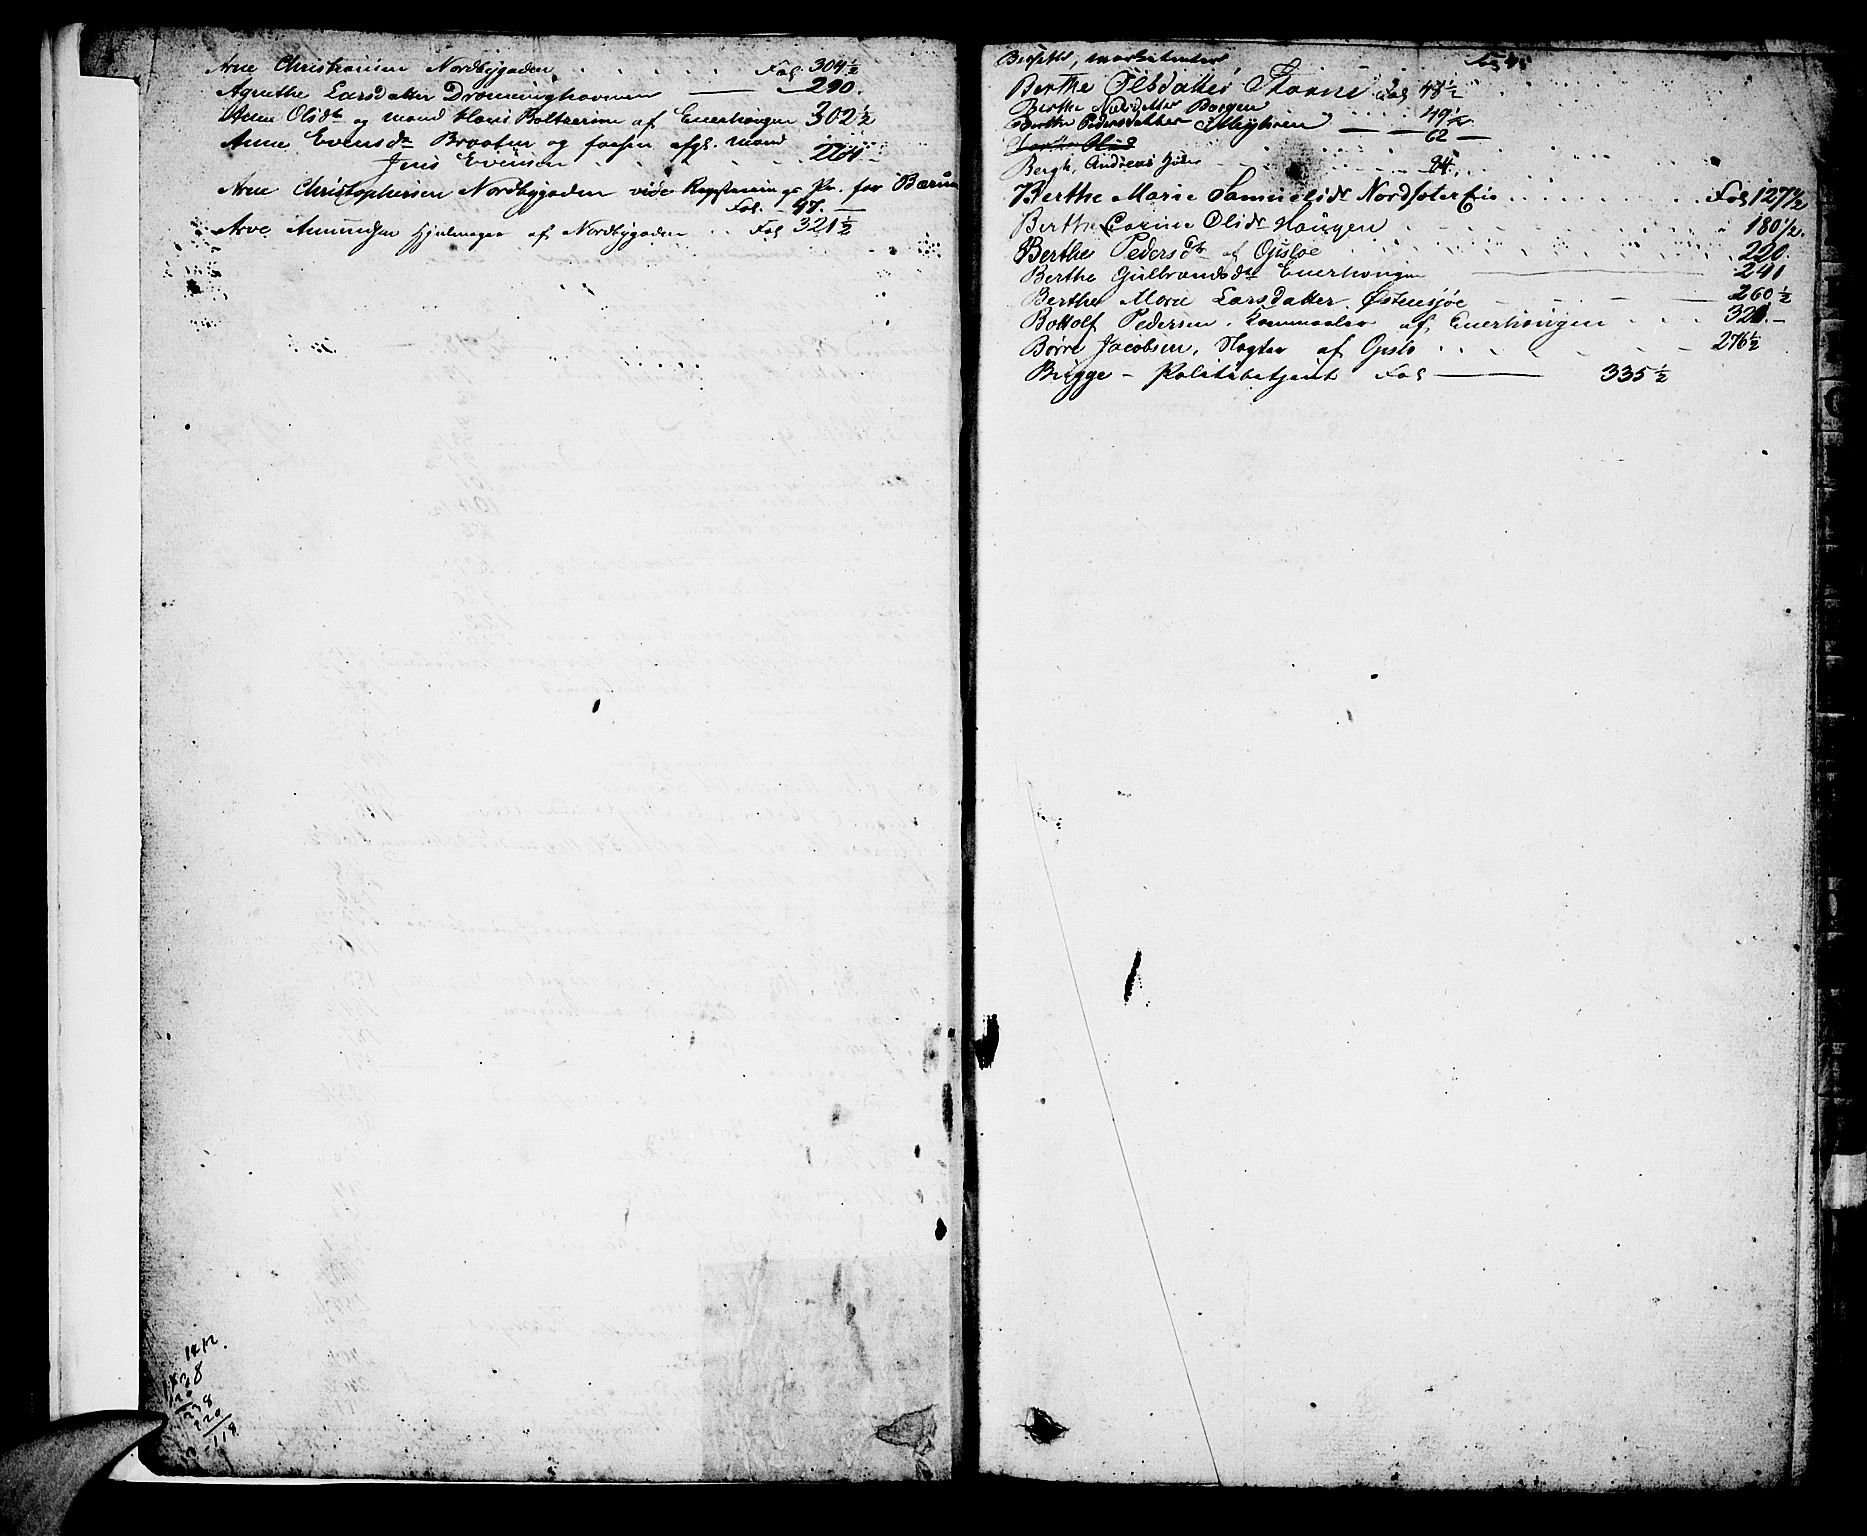 Arne Christiansen Nordbygaden . . . . . . Fol. 304½
Agnethe Larsdatter Dronninghavnen — 290.
Anne Olsdr og mand Hans Baltzersen af Enerhougen 302½
Anne Evensdr Braaten og forhen afg. mand
Jens Evensen . . . . . 264 –
Arne Christophersen Nordbygaden vide Registrerings Pr. for Bærum
Fol. – 47. —
Arve Amundsen Hjulmager af Nordbygaden . . Fol 321½
Berthe Olsdatter Fol 48½
Berthe Nielsdatter Borgen . . . . 49½
Berthe Pedersdatter Myhren — — 62 –
Bergh, Andreas 94.
Berthe Marie Samuelsdr Nordseter Eie . . . . . Fol 127½
Berthe Carine Olsdr Haugen 180½.
Berthe Pedersdr af Opsloe 220.
Berthe Gulbrandsdr Enerhougen — 241
Berthe Marie Larsdatter Østensjøe — 260½
Bottolf Pedersen . af Enerhougen . . . 321. –
Børre Jacobsen, Slagter af Opslo . . . . . 276½
Brygge – Politibetjent Fol — 335½
1412.
1238
220